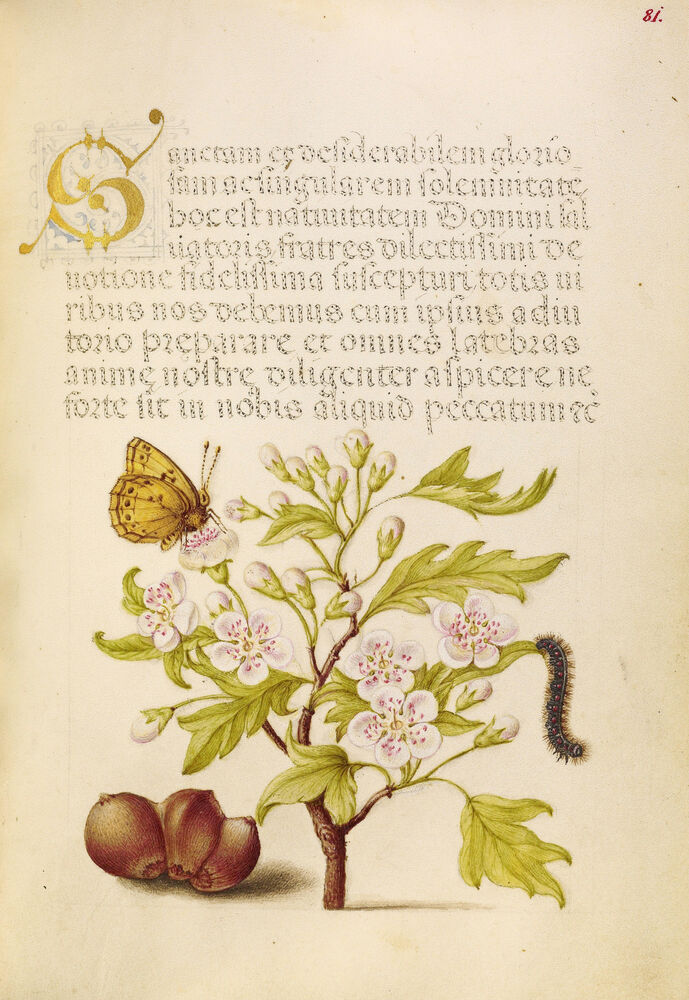 81.
Sanctam et desiderabilem glorio
sam ac singularem solemnitatē
hoc est natiuitatem Domini sal
uatoris, fratres dilectissimi de
uotione fidelissima suscepturi totis ui
ribus nos debemus cum ipsius adiu
torio preparare et omnes latebras
animę nostrę diligenter aspicere ne
forte sit in nobis aliquid peccatum ec̄